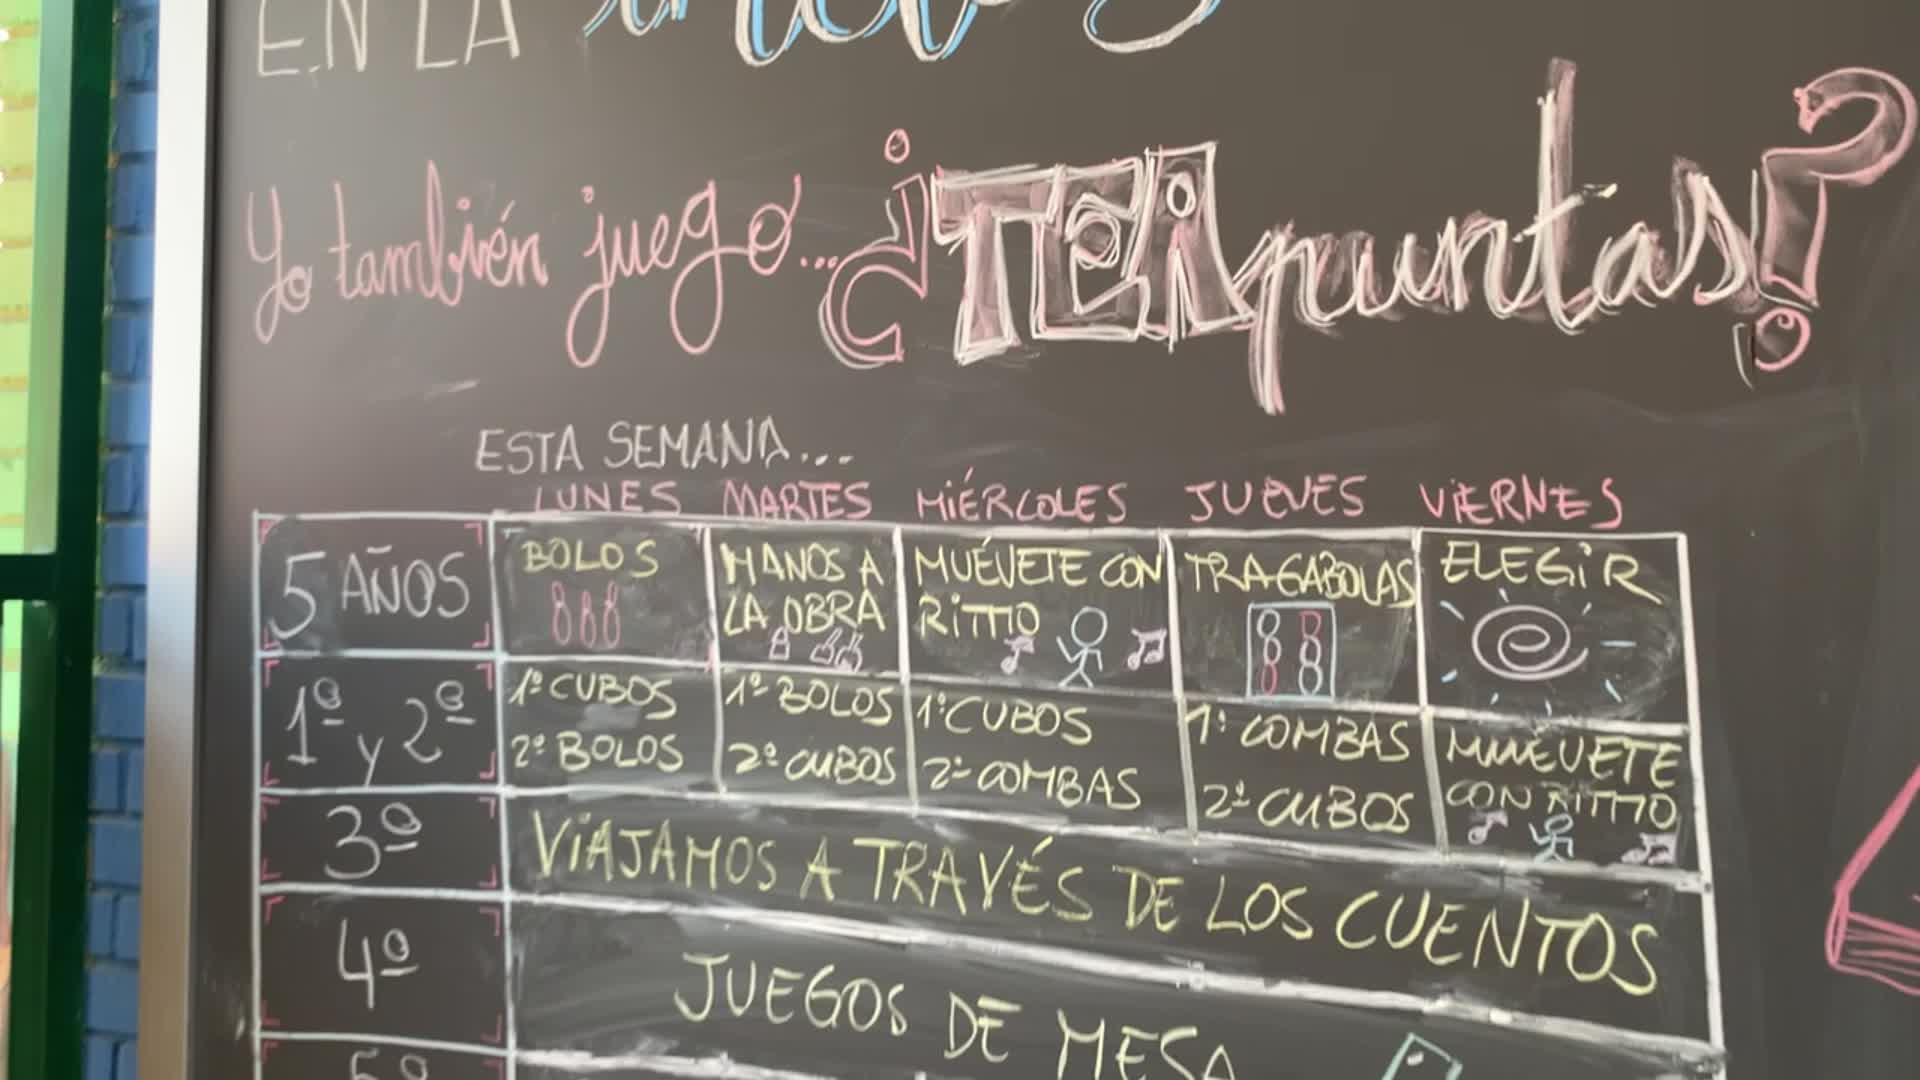 EN LA
Yo también juego... ¿TEi puntas?
ESTA SEMANA...
LUNES MARTES MiÉRCOLES JUEVES ViERNES
5 AÑOS
BOLOS
MANOS A
LA OBRA
MUÉVETE CON
RiTMO
TRAGABOLAS
ELEGiR
1º y 2º
1º CUBOS
2º BOLOS
1º BOLOS
2º CUBOS
1º CUBOS
2º COMBAS
1º COMBAS
2º CUBOS
MUÉVETE
CON RITMO
3º
ViAJAMOS A TRAVÉS DE LOS CUENTOS
4º
JUEGOS DE MESA
5º